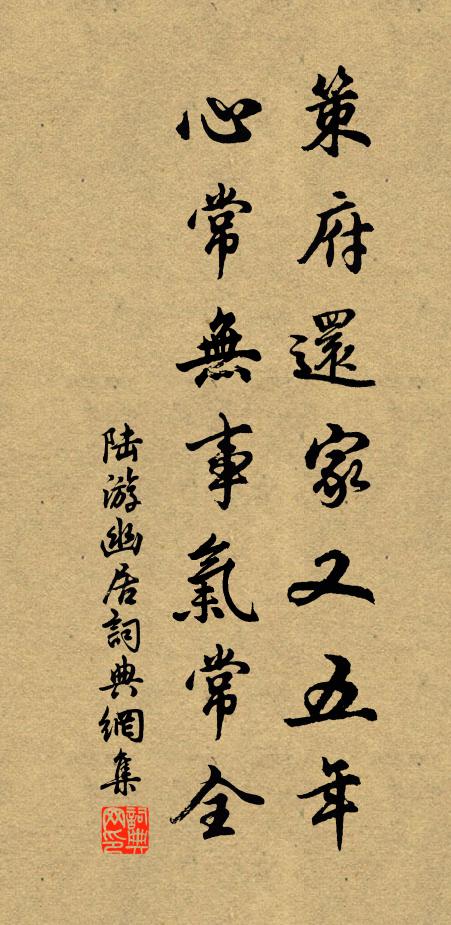 策府還家又五年
心常無事氣常全
陆游幽居詞典網集
詞典網印